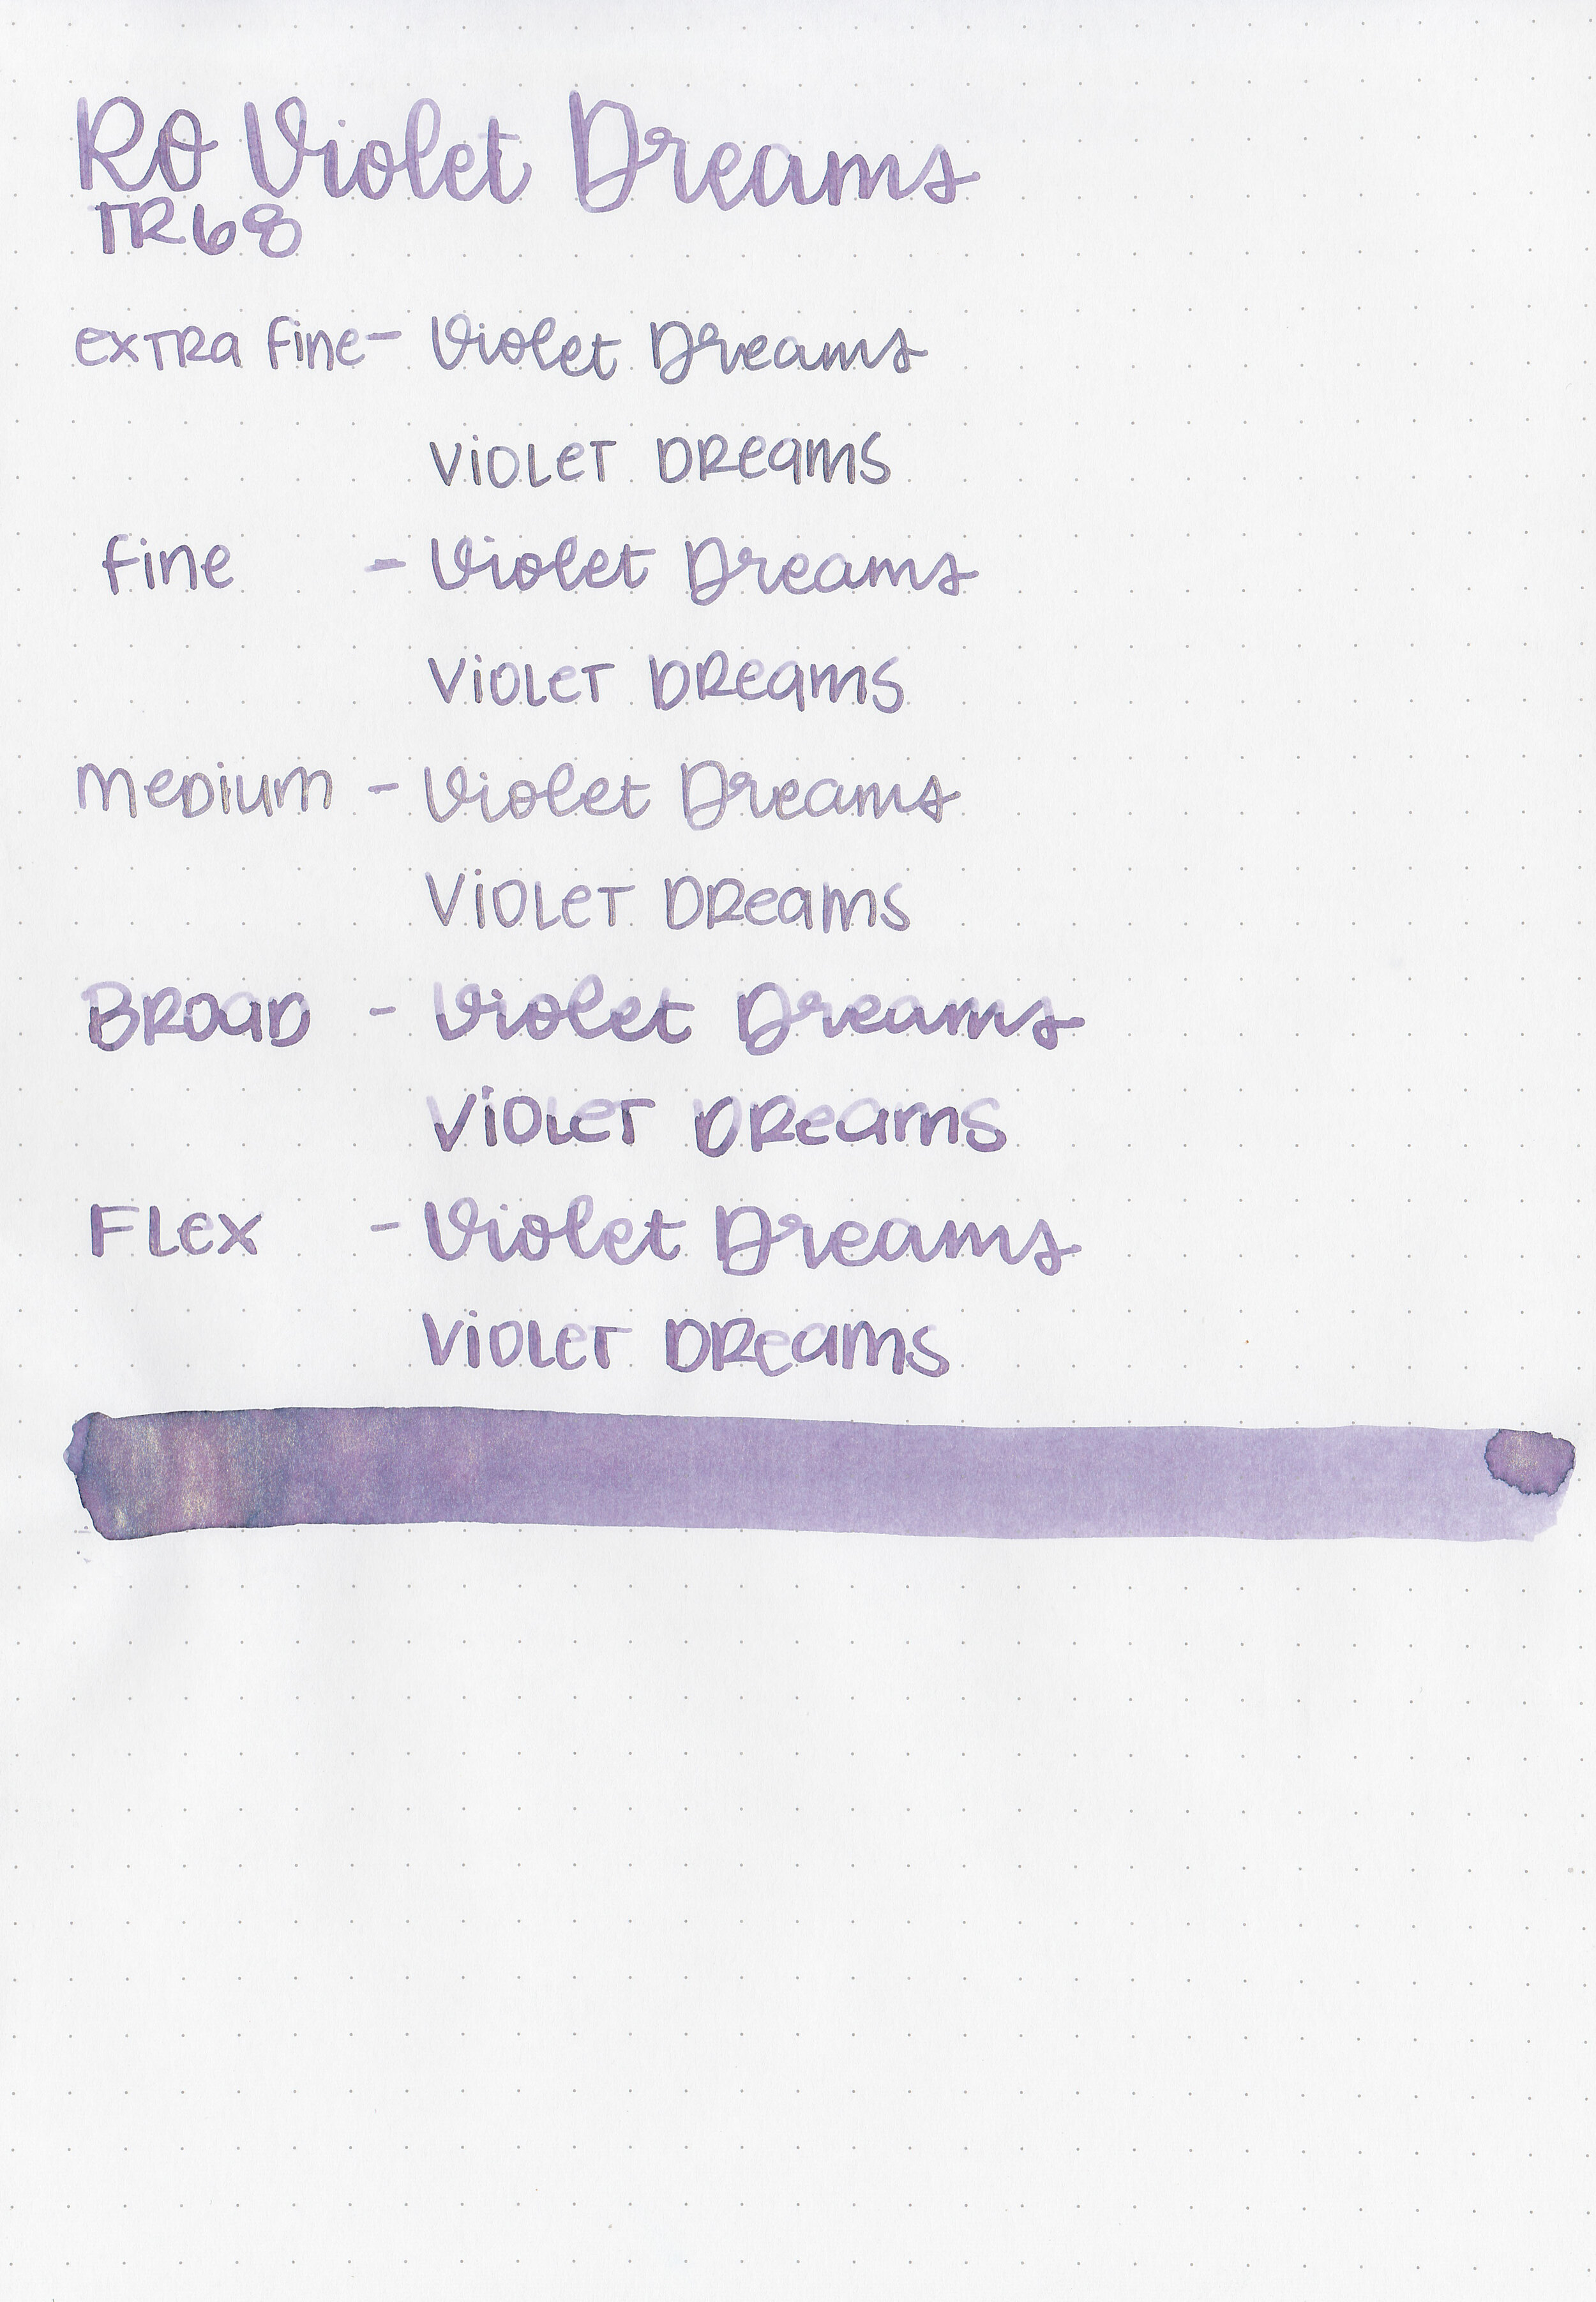 RO Violet Dreams
TR68
extra fine - Violet Dreams
Violet Dreams
fine - Violet Dreams
Violet Dreams
Medium - Violet Dreams
Violet Dreams
Broad - Violet Dreams
Violet Dreams
Flex - Violet Dreams
Violet Dreams